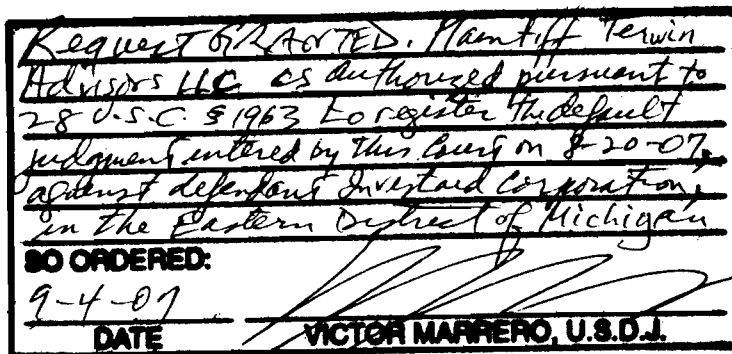 Request GRANTED. Plaintiff Terwin
Advisors LLC is authorized pursuant to
28 U.S.C. § 1963 to register the default
judgment entered by this Court on 8-20-07,
against defendant Investaid Corporation,
in the Eastern District of Michigan
SO ORDERED:
9-4-07
DATE VICTOR MARRERO, U.S.D.J.